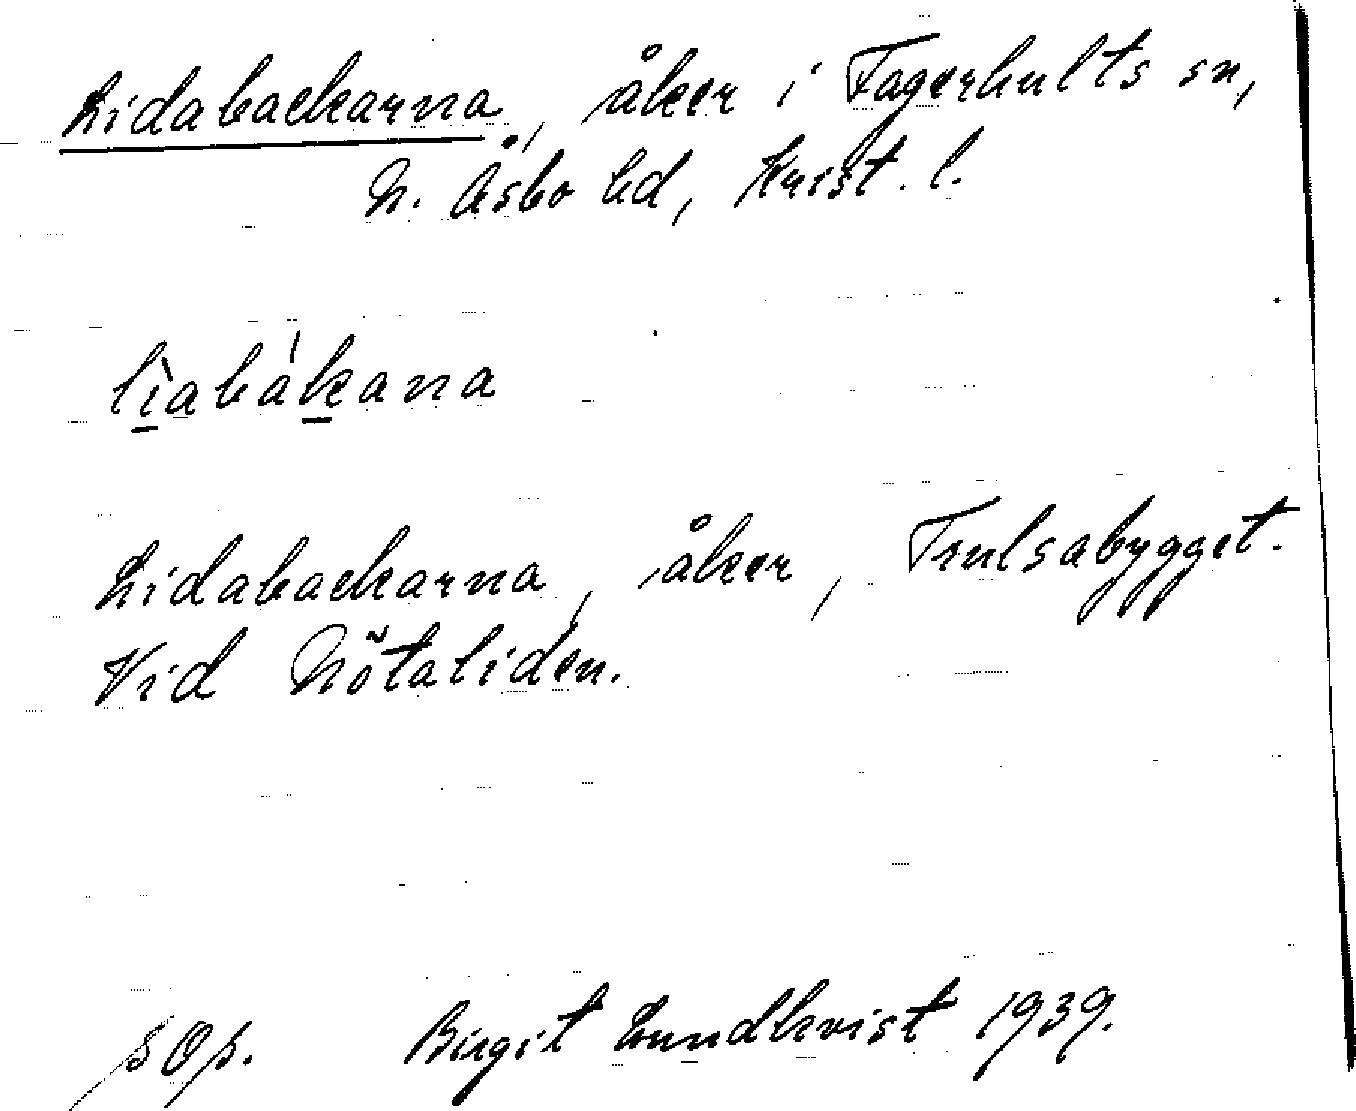 Lidabackarna, åker i Fagerhults sn,
N. Åsbo hd, Krist. l.
lìabákana
Lidabackarna, åker, Trulsabygget.
Vid Nötaliden.
Birgit Lundkvist 1939.